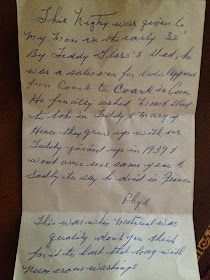 This Nighty was given to
My Mom in the early 30
By Teddy Dad, he
was a salesman for ladies apparel
from Coast to Coast in Can
He finally asked Dad
to take in Teddy & Marg
Hence they grew up with us
Teddy joined up in 1939 &
went over seas same year &
Sadly to say he died in France
Phyl
This was when Material was
quality don't you think
for it to last that long with
numerous washings